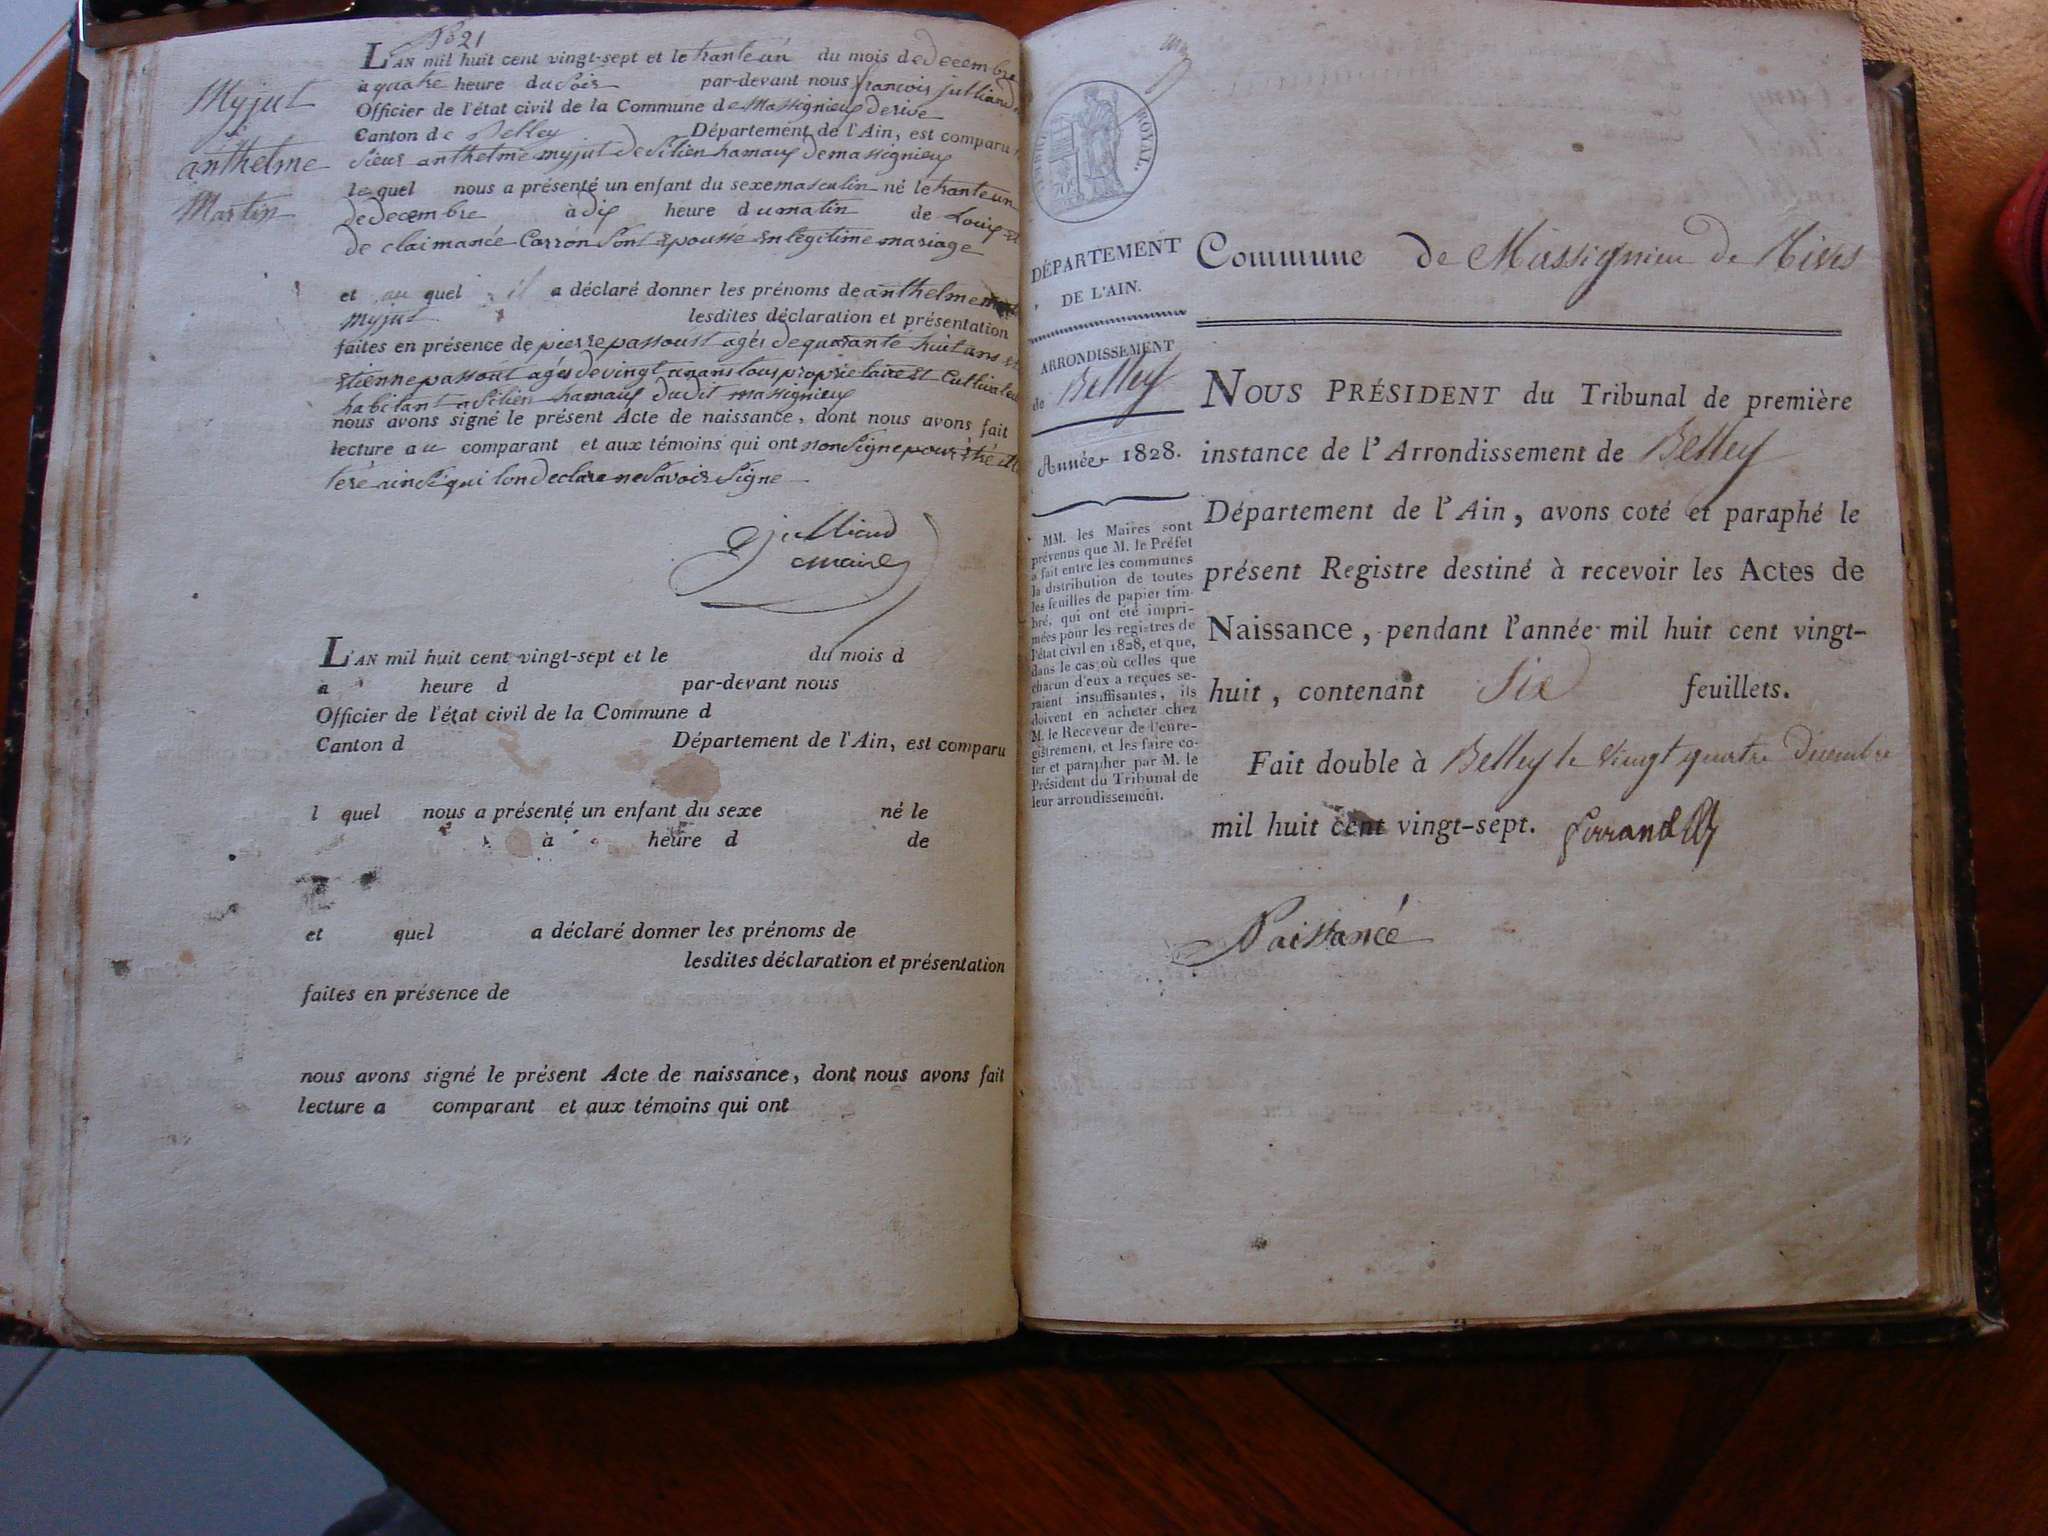 No 21
Myjut
anthelme
Martin
L'AN mil huit cent vingt-sept et le tranteun du mois de decembre
a quatre heure du soir par-devant nous francois julliand
Officier de l'état civil de la Commune de Massignieux derive
Canton de Belley Département de l'Ain, est comparu
sieur anthelme myjut de silien hamaux de massignieux
lequel nous a présenté un enfant du sexe masculin né le tranteun
de decembre à dix heure du matin de Louix et
de claimancé Carron sont Epoussé En legitime mariage
et au quel il a déclaré donner les prénoms de anthelme
myjut lesdites déclaration et présentation
faites en présence de pierre passoust agés de quarante huit ans et
Etienne passout agés de vingt un ans tous proprietaire Et Cultivateu
habitant a silien hamaux dudit massignieux
nous avons signé le présent Acte de naissance, dont nous avons fait
lecture au comparant et aux témoins qui ont non signe pour
tere ainsé qui lon declare ne savoir signe
julliand
maire
L'AN mil huit cent vingt-sept et le du mois d
a heure d par-devant nous
Officier de l'état civil de la Commune d
Canton d Département de l'Ain, est comparu
l quel nous a présenté un enfant du sexe né le
à heure d de
et quel a déclaré donner les prénoms de
lesdites déclaration et présentation
faites en présence de
nous avons signé le présent Acte de naissance, dont nous avons fait
lecture a comparant et aux témoins qui ont
TIMBRE ROYAL.
DÉPARTEMENT
DE L'AIN.
ARRONDISSEMENT
de Belley
Année 1828.
MM. les Maires sont
prévenus que M. le Préfet
a fait entre les communes
la distribution de toutes
les feuilles de papier tim-
bré, qui ont été impri-
mées pour les registres de
l'état civil en 1828, et que,
dans le cas où celles que
chacun d'eux a reçues se-
raient insuffisantes, ils
doivent en acheter chez
M. le Receveur de l'enre-
gistrement, et les faire co-
ter et parapher par M. le
Président du Tribunal de
leur arrondissement.
Commune de Massignieu de Rives
NOUS PRÉSIDENT du Tribunal de première
instance de l'Arrondissement de Belley
Département de l'Ain, avons coté et paraphé le
présent Registre destiné à recevoir les Actes de
Naissance, pendant l'année mil huit cent vingt-
huit, contenant Six feuillets.
Fait double à Belley le vingt quatre Décembre
mil huit cent vingt-sept.
Naissancé